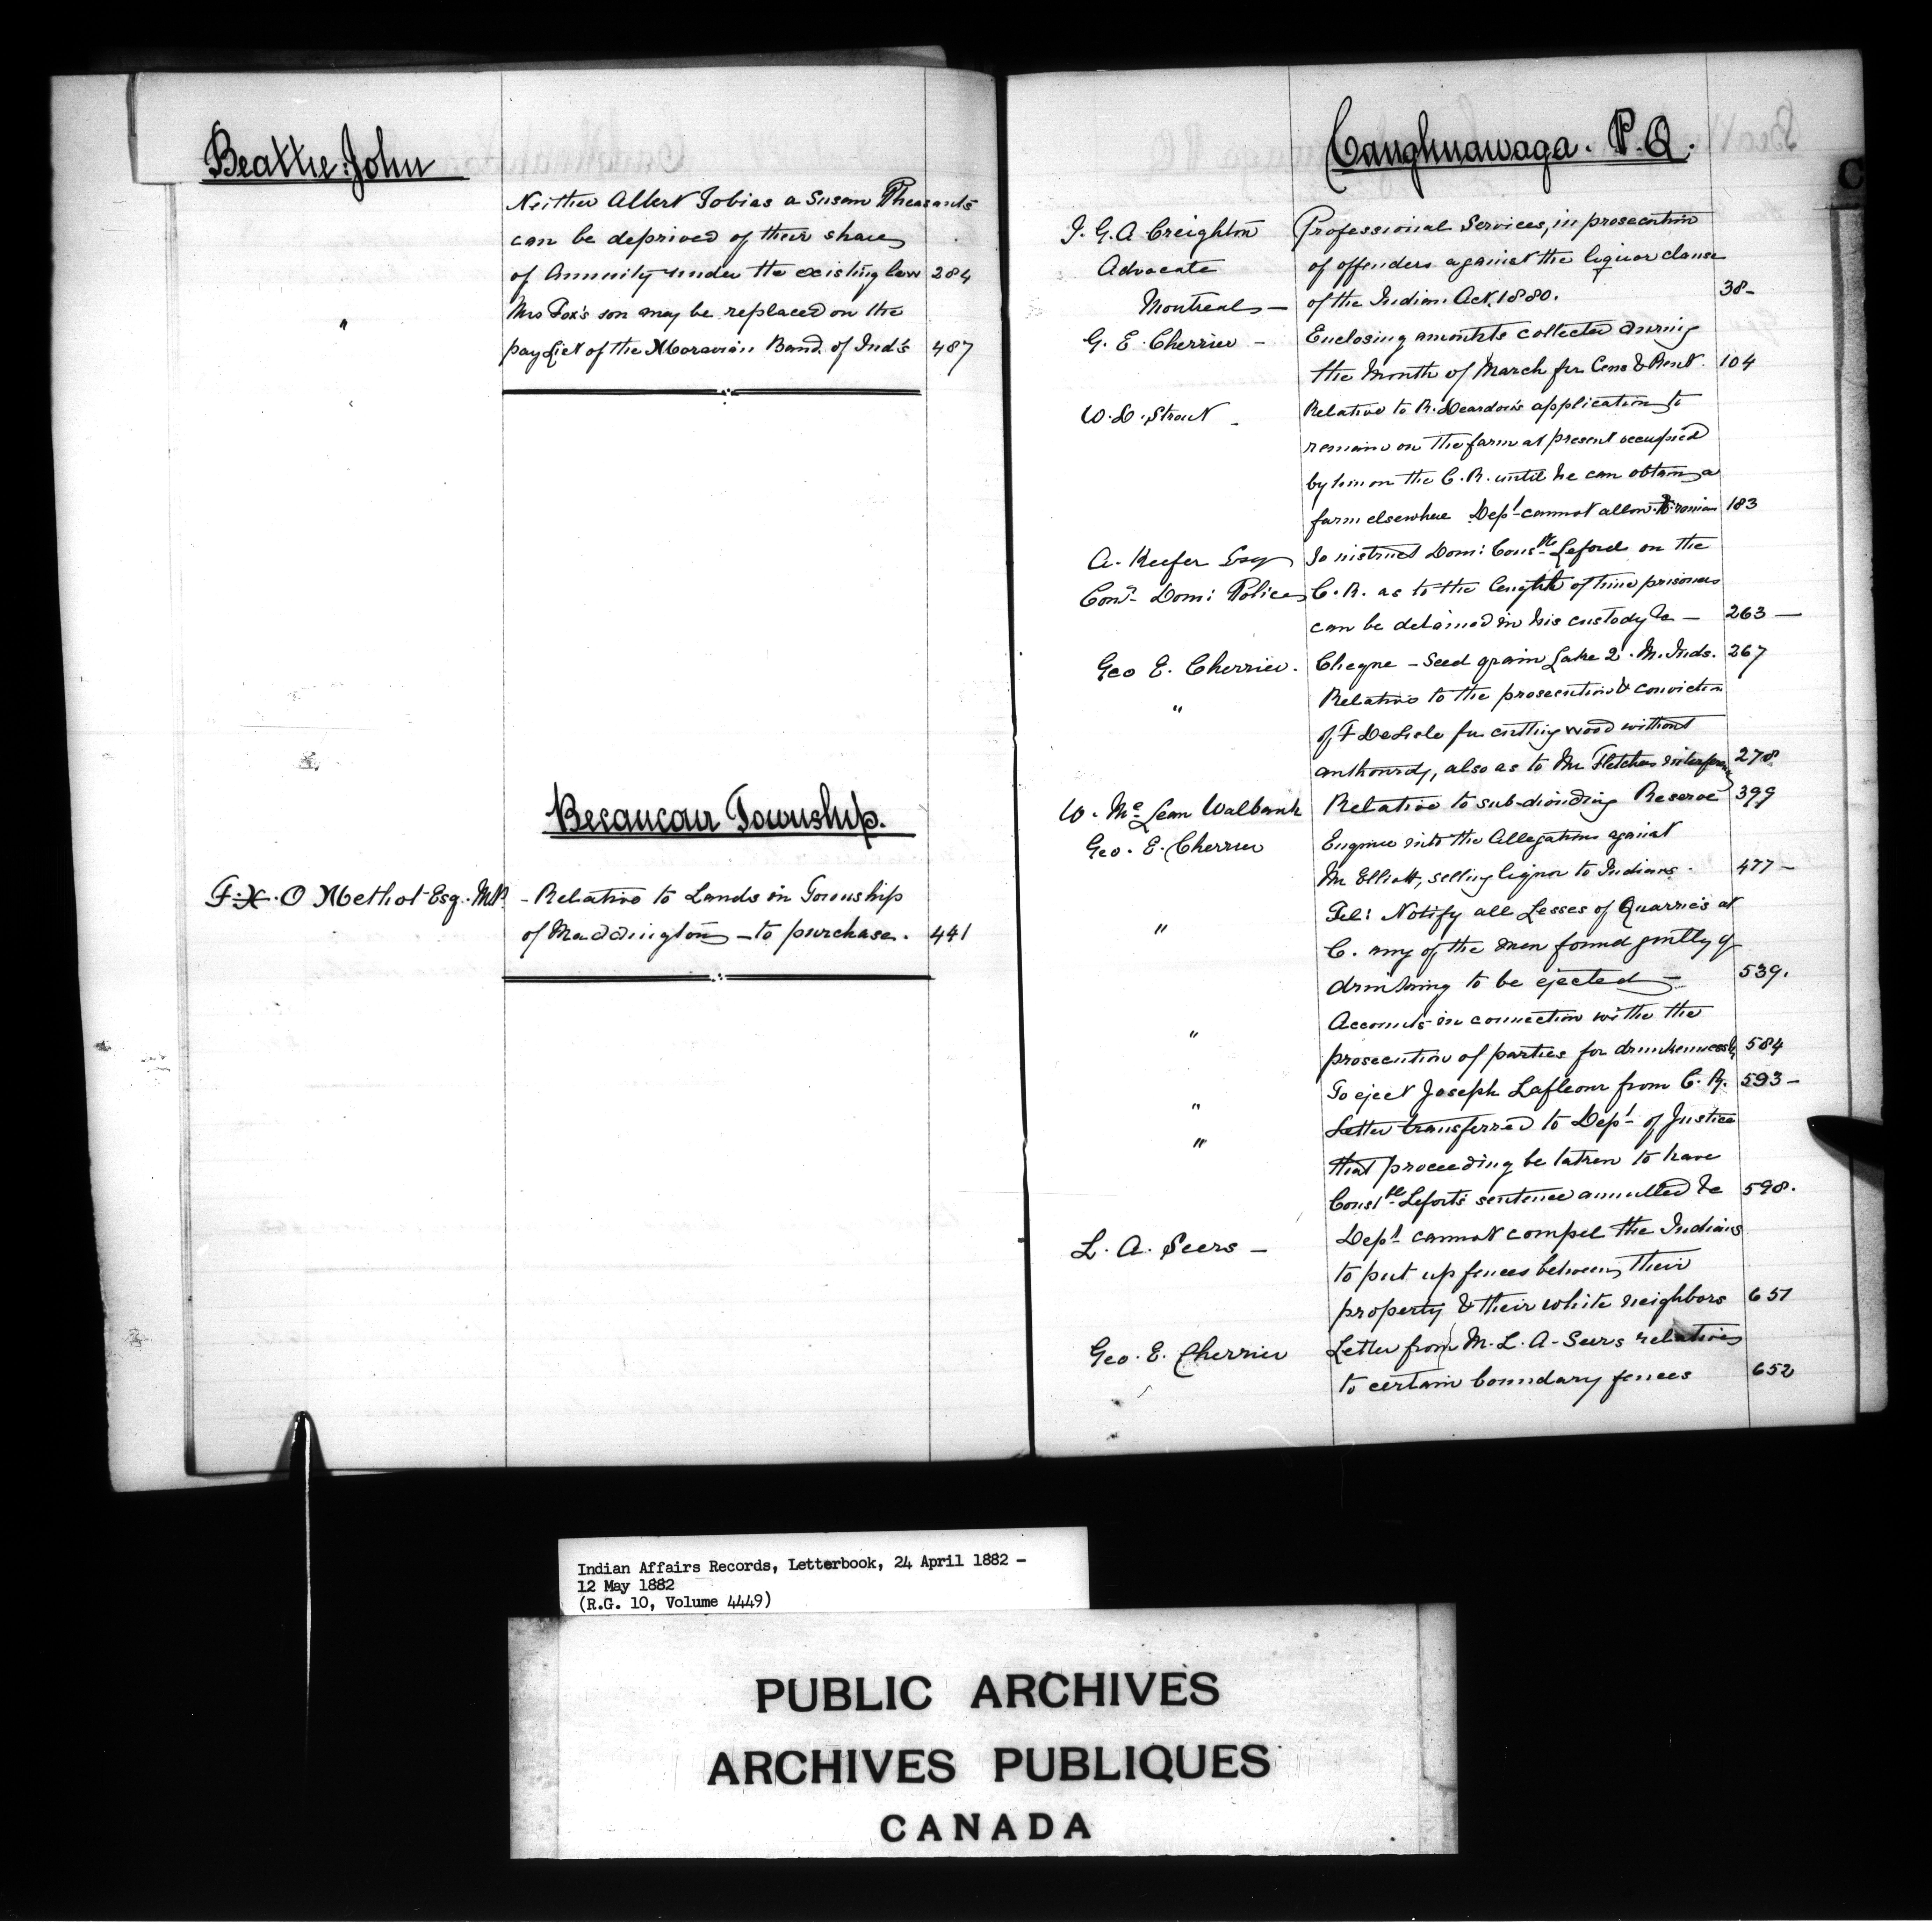 Beattie: John
Neither Albert Tobias a Susan Pheasants
can be deprived of their shares
of Annuity under the existing law 284
" Mrs Fox's son may be replaced on the
pay List of the Moravian Band of Ind's 487
Becancour Township.
F. X. O Methot Esq. M.P. - Relative to Lands in Township
of Maddington - to purchase. 441
Caughnawaga. P.Q.
C
J. G. A Creighton Professional Services, in prosecution
Advocate of offenders against the liquor clause
Montreal - of the Indian Act, 1880. 38-
G. E. Cherrier - Enclosing amounts collected during
the Month of March for Cens & Rent. 104
W. D. Strout - Relative to R. Deardon's application to
remain on the farm at present occupied
by him on the C. R. until he can obtain a
farm elsewhere Dept. cannot allow remain 183
A. Keefer Esq To instruct Dom: Consble Leford on the
Comr. Dom: Police C. R. as to the length of time prisoners
can be detained in his custody &c - 263 -
Geo E. Cherrier. Cheque - Seed grain Lake 2. M. Inds. 267
" Relative to the prosecution & conviction
of F DeLisle for cutting wood without
authourdy, also as to Mr Fletchers interference 278
W. Mc Lean Walbank Relative to sub-dividing Reserve 399
Geo. E. Cherrier Enquire into the Allegations against
Mr Elliott, selling liquor to Indians. 477 -
" Tel: Notify all Lesses of Quarries at
C. any of the men found guilty of
drinking to be ejected - 539.
" Accounts in connection withe the
prosecution of parties for drunkenness &c 584
" To eject Joseph Lafleour from C. R. 593 -
" Letter transferred to Dept. of Justice
that proceeding be taken to have
Constble Leforts sentence annulled &c 598.
L. A. Seers - Dept. cannot compel the Indians
to put up fences between their
property & their white neighbors 651
Geo. E. Cherrier Letter from M. L. A. Seers relative
to certain boundary fences 652
Indian Affairs Records, Letterbook, 24 April 1882 -
12 May 1882
(R.G. 10, Volume 4449)
PUBLIC ARCHIVES
ARCHIVES PUBLIQUES
CANADA